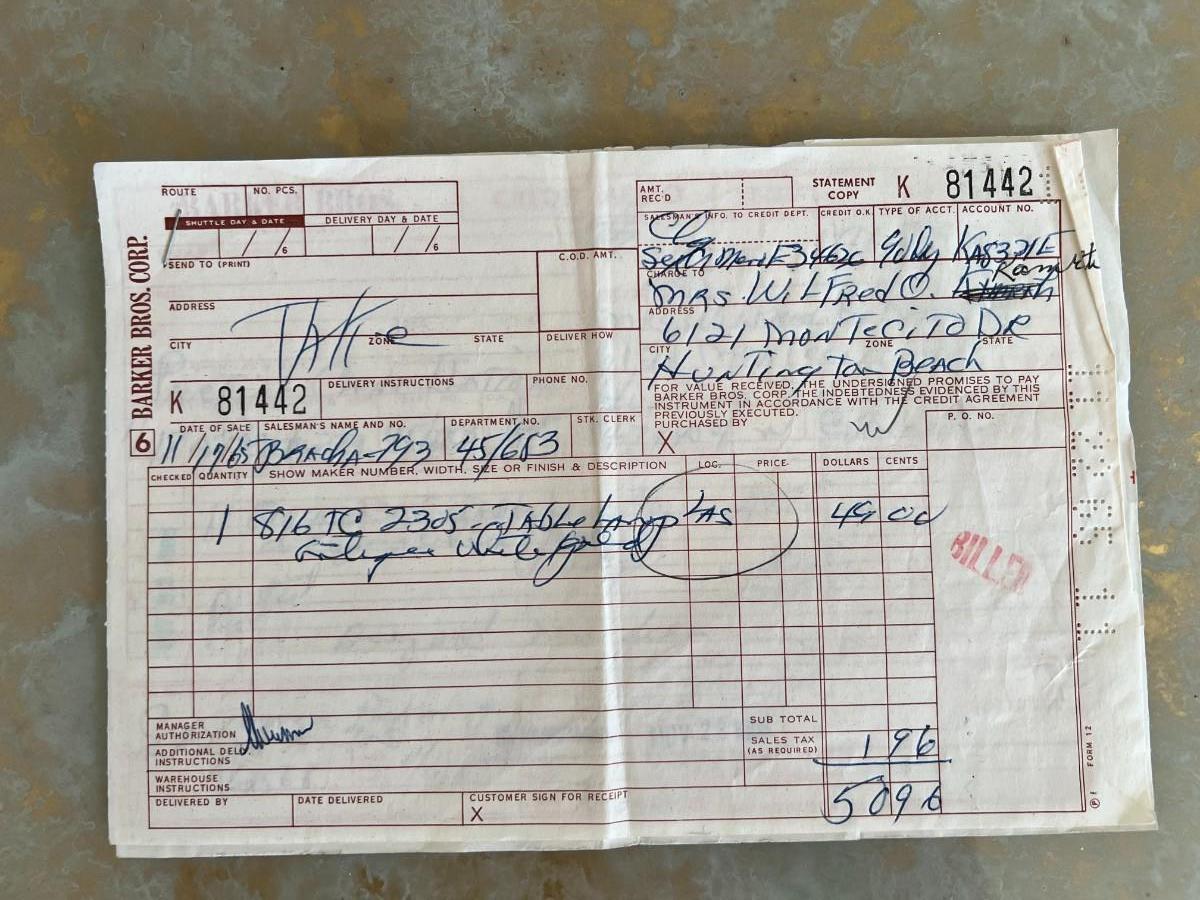 ROUTE NO. PCS.
SHUTTLE DAY & DATE DELIVERY DAY & DATE
/ / 6 / / 6
SEND TO (PRINT)
C.O.D. AMT.
ADDRESS
TAKE
CITY ZONE STATE DELIVER HOW
K 81442 DELIVERY INSTRUCTIONS PHONE NO.
BARKER BROS. CORP.
6
AMT. REC'D
STATEMENT COPY K 81442
SALESMAN'S INFO. TO CREDIT DEPT. CREDIT O.K. TYPE OF ACCT. ACCOUNT NO.
CHARGE TO
MRS. WILFRED O.
ADDRESS
6121 MONTECITO DR
CITY ZONE STATE
HUNTINGTON BEACH
FOR VALUE RECEIVED, THE UNDERSIGNED PROMISES TO PAY
BARKER BROS. CORP. THE INDEBTEDNESS EVIDENCED BY THIS
INSTRUMENT IN ACCORDANCE WITH THE CREDIT AGREEMENT
PREVIOUSLY EXECUTED.
PURCHASED BY
X
P. O. NO.
DATE OF SALE SALESMAN'S NAME AND NO. DEPARTMENT NO. STK. CLERK
11/17/65 793 45/653
CHECKED QUANTITY SHOW MAKER NUMBER, WIDTH, SIZE OR FINISH & DESCRIPTION LOC. PRICE DOLLARS CENTS
1 816 TC 2305 - TABLE LAMP LAS 49 00
BILLED
MANAGER AUTHORIZATION
SUB TOTAL
ADDITIONAL DEL. INSTRUCTIONS
SALES TAX (AS REQUIRED) 1 96
WAREHOUSE INSTRUCTIONS
DELIVERED BY DATE DELIVERED CUSTOMER SIGN FOR RECEIPT
X
50 96
FORM 12